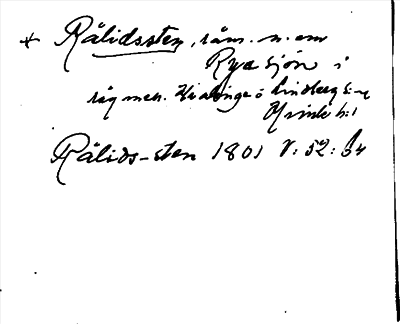 * Rålidssten, råm. n. om
Rya sjön i
råg mell. Hialinge o Lindberg s-r
Himle h:d
Rålids-sten 1801 V: 52: 54